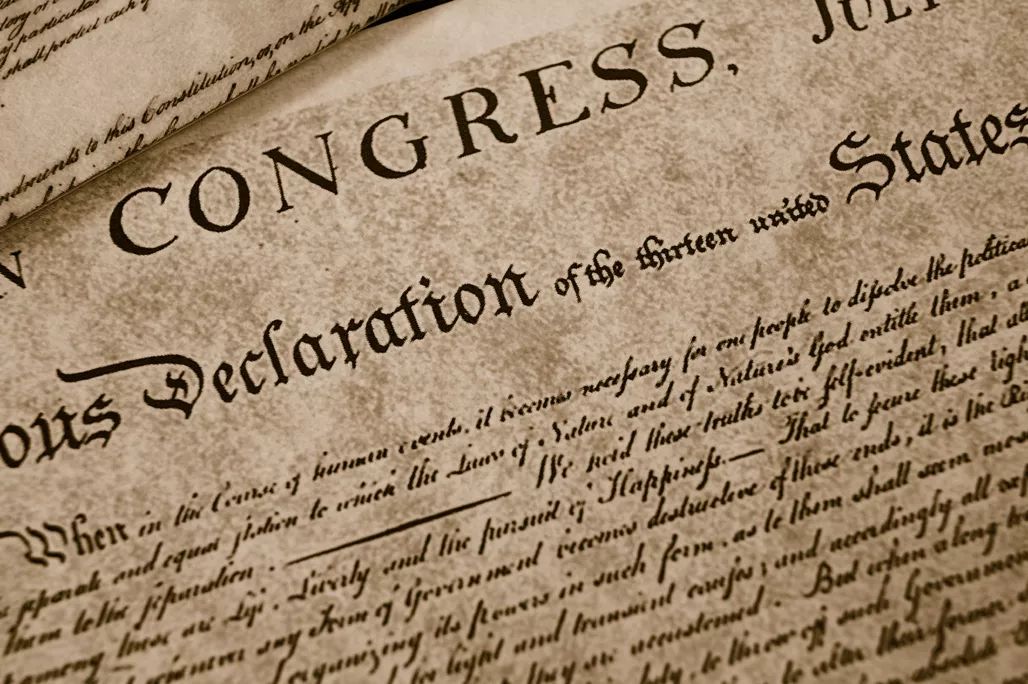 shall protect each of
this Constitution, or, on the App
ndments to this Constitution
N CONGRESS, JULY
ous Declaration of the thirteen united States
When in the Course of human events, it becomes necessary for one people to dissolve the political
separate and equal station to which the Laws of Nature and of Nature's God entitle them, a
them to the separation. We hold these truths to be self-evident, that all
among these are Life, Liberty and the pursuit of Happiness.— That to secure these righ
whenever any Form of Government becomes destructive of these ends, it is the Ri
organizing its powers in such form, as to them shall seem mos
for light and transient causes; and accordingly all exp
they are accustomed. But when a long tra
duty, to throw off such Government
to alter their former
absolute